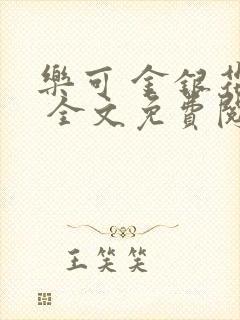 樂可 金銀花
全文免費閱
王笑笑